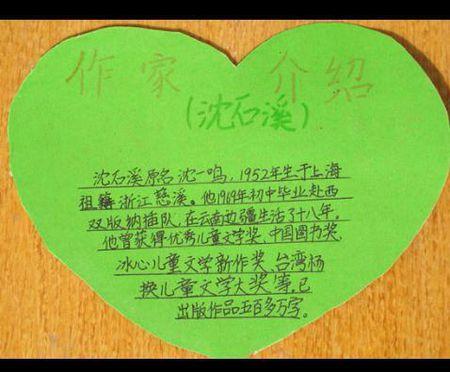 作家 介绍
(沈石溪)
沈石溪原名沈一鸣，1952年生于上海
祖籍浙江慈溪。他1969年初中毕业赴西
双版纳插队，在云南边疆生活了十八年。
他曾获得优秀儿童文学奖、中国图书奖、
冰心儿童文学新作奖、台湾杨
换儿童文学大奖等，已
出版作品五百多万字。